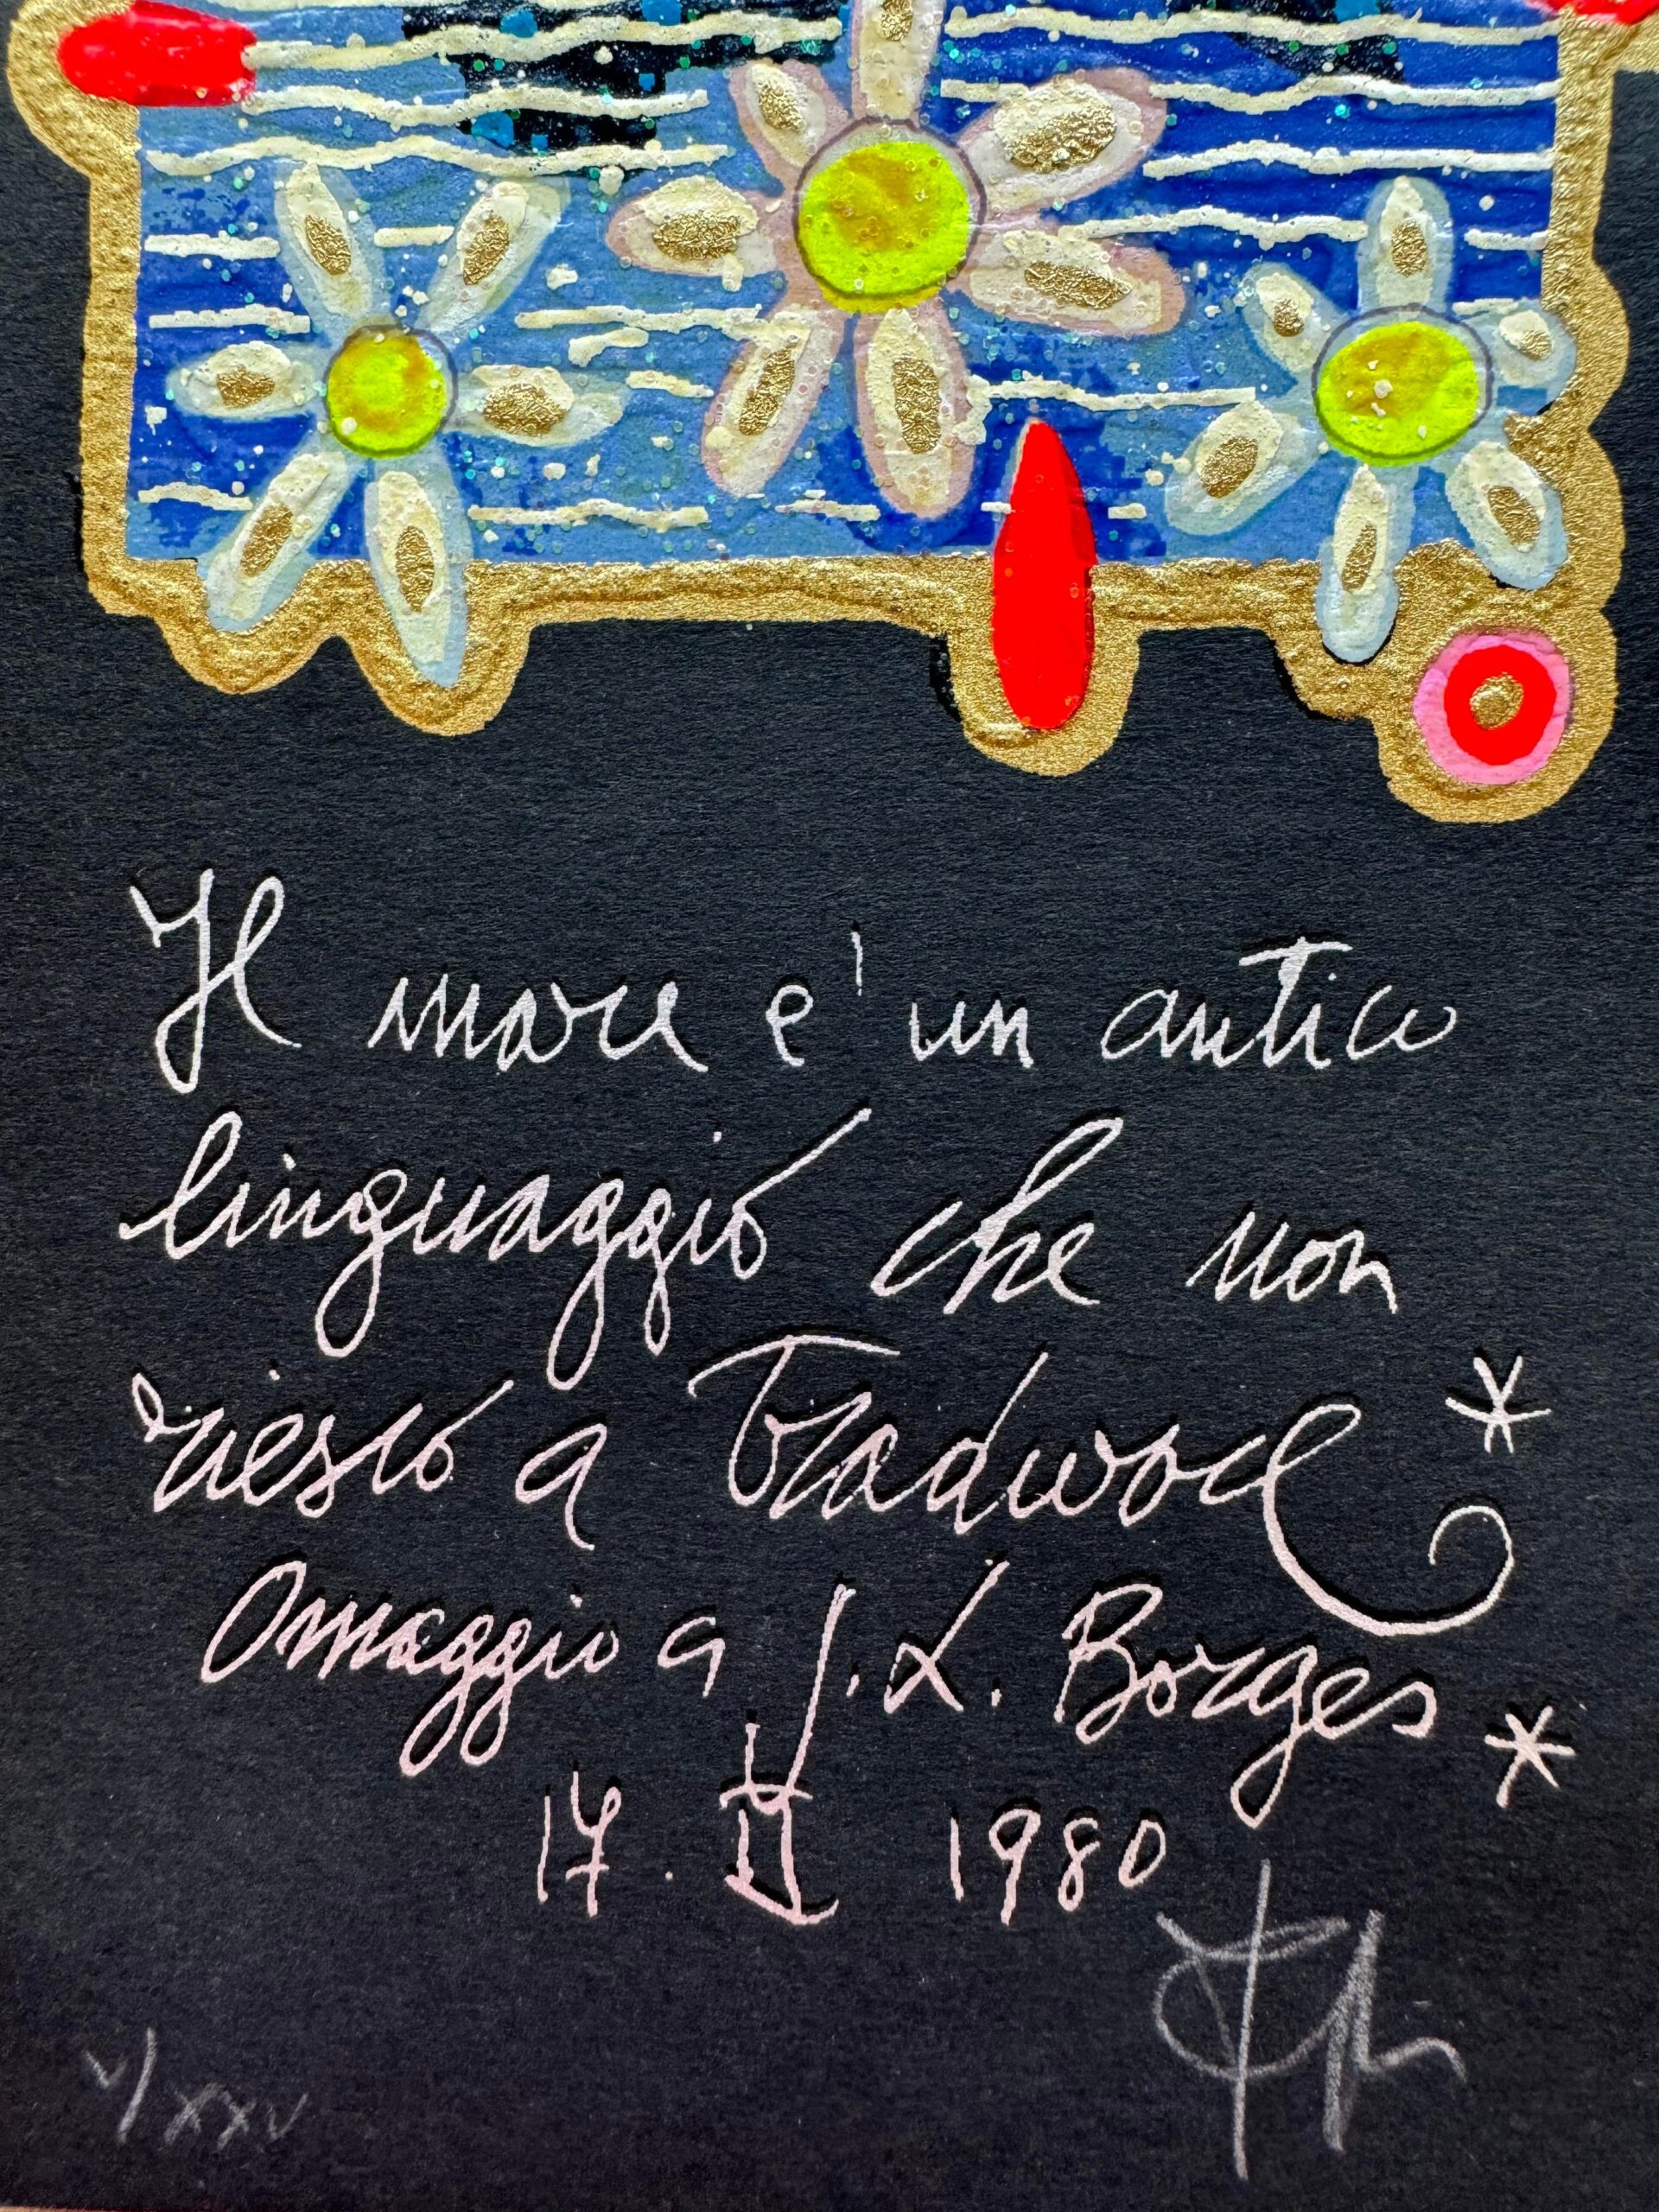 Il mare e' un antico
linguaggio che non
riesco a Tradurre *
Omaggio a J. L. Borges *
17. II 1980
V/XXV